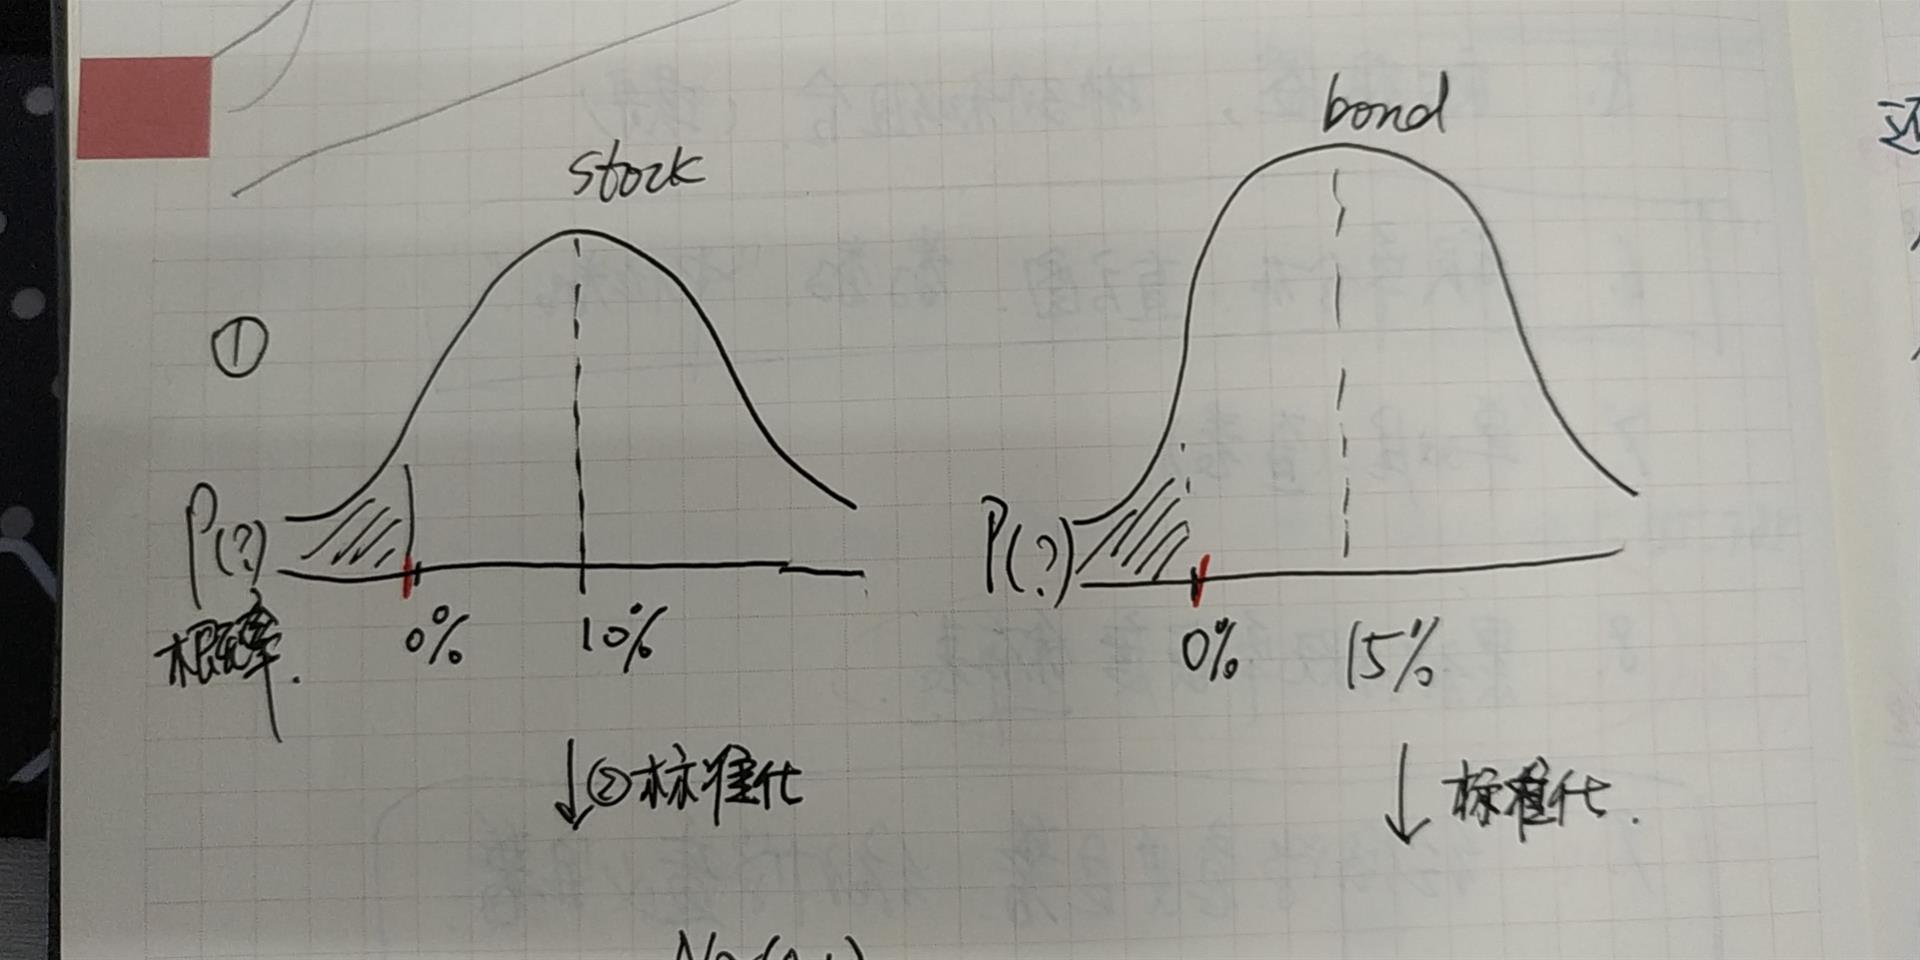 stock
bond
①
P(?)
概率.
0%
10%
P(?)
0%
15%
↓②标准化
↓标准化.